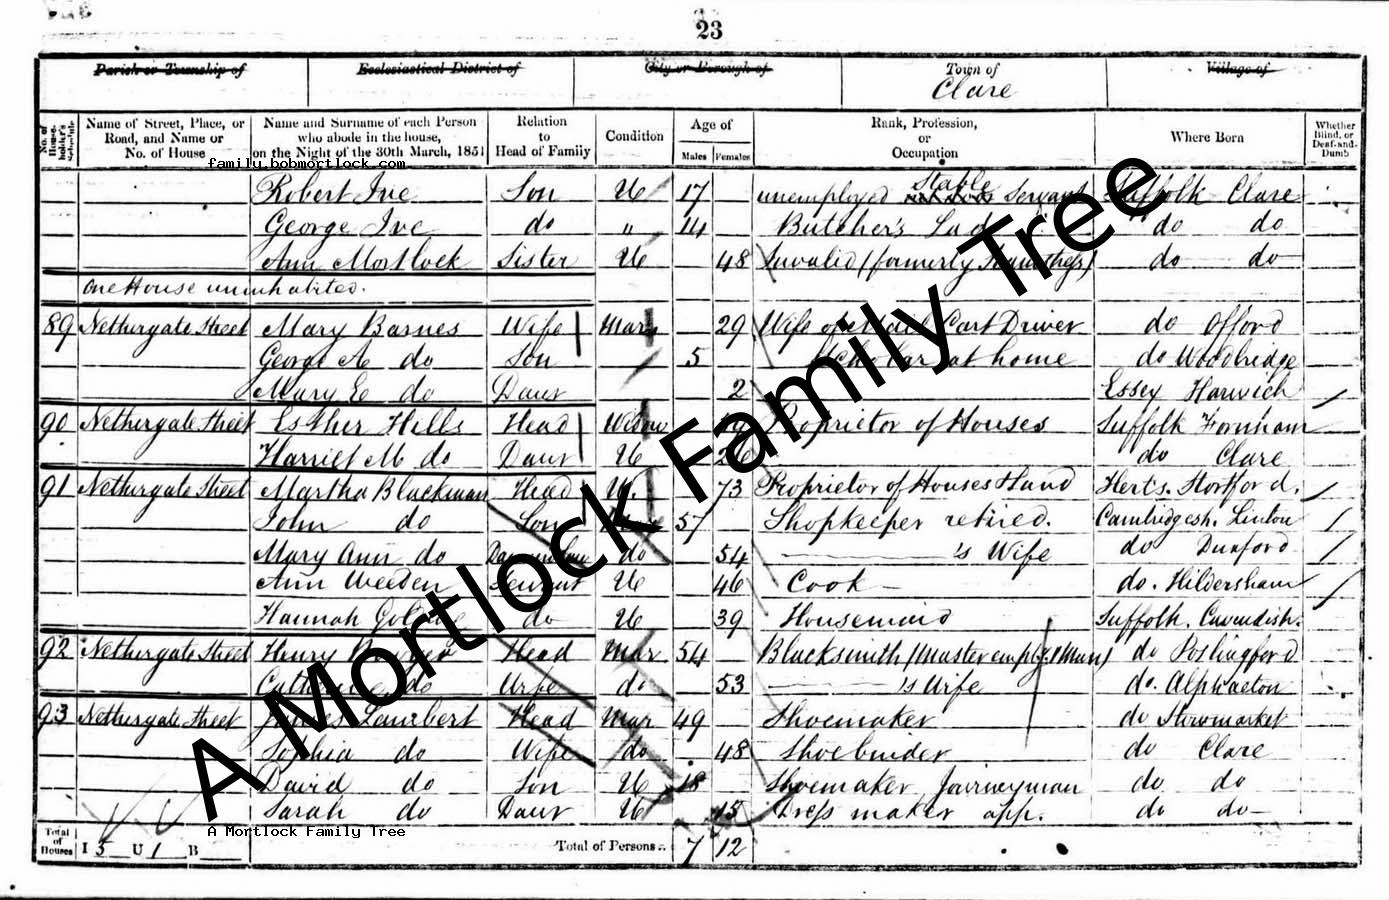 23
Parish or Township of Ecclesiastical District of City or Borough of Town of Village of
Clare
No. of House-holder's Schedule Name of Street, Place, or Road, and Name or No. of House Name and Surname of each Person who abode in the house, on the Night of the 30th March, 1851 Relation to Head of Family Condition Age of Males Females Rank, Profession, or Occupation Where Born Whether Blind, or Deaf-and-Dumb
family.bobmortlock.com
Robert Ive Son U 17 unemployed Stable Servant Suffolk Clare
George Ive do " 14 Butcher's Lad do do
Ann Mortlock Sister U 48 Invalid (formerly do do
One House uninhabited.
89 Nethergate Street Mary Barnes Wife Mar 29 Wife of Mail Cart Driver do Offord
George A do Son 5 Scholar at home do Woodbridge
Mary E do Daur 2 Essex Harwich
90 Nethergate Street Esther Hills Head Widow Proprietor of Houses Suffolk Fornham
Harriet M do Daur U 26 do Clare
91 Nethergate Street Martha Blackman Head W. 73 Proprietor of Houses & Land Herts. Hortford.
John do Son 57 Shopkeeper retired. Cambridgesh. Linton
Mary Ann do do 54 's Wife do Duxford
Ann Weeden Servant U 46 Cook do. Hildersham
Hannah do U 39 Housemaid Suffolk. Cavendish.
92 Nethergate Street Henry Head Mar 54 Blacksmith (Master employg 1 Man) do Poslingford
Catherine do Wife do 53 's Wife do. Alpheton
93 Nethergate Street James Lambert Head Mar 49 Shoemaker do Stowmarket
Sophia do Wife do 48 Shoebinder do Clare
David do Son U 18 Shoemaker Journeyman do do
Sarah do Daur U 15 Dress maker app. do do
A Mortlock Family Tree
Total of Houses I 5 U 1 B Total of Persons.. 7 12
A Mortlock Family Tree